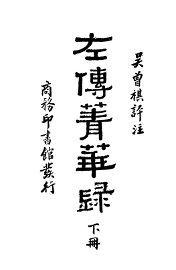 吳曾祺評注
左傳菁華錄
下冊
商務印書館發行